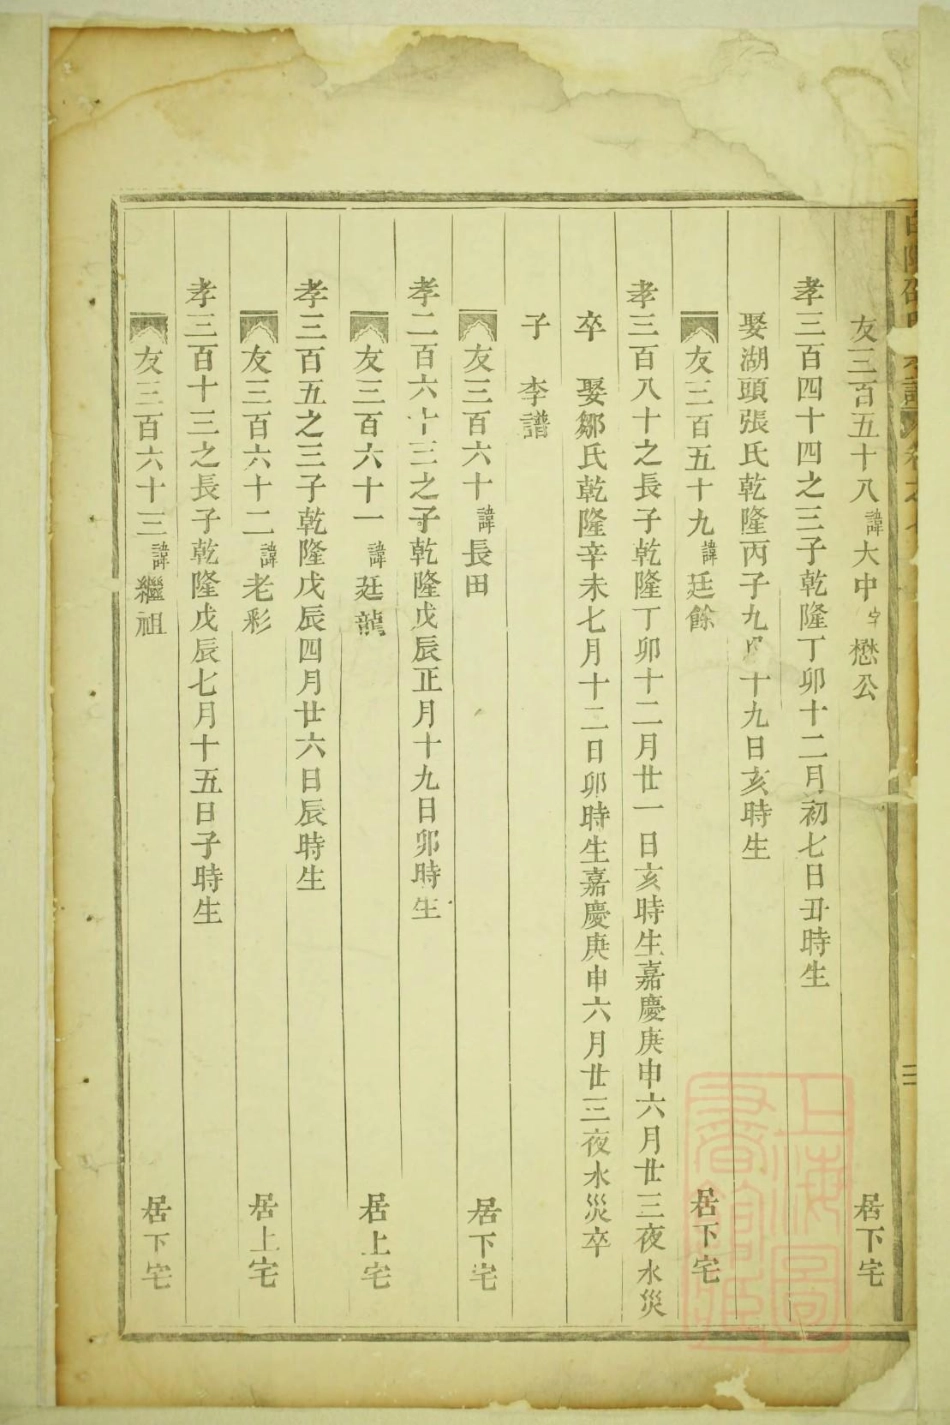 友三百五十八諱大中字懋公 居下宅
孝三百四十四之三子乾隆丁卯十二月初七日丑時生
娶湖頭張氏乾隆丙子九月十九日亥時生
友三百五十九諱廷餘 居下宅
孝三百八十之長子乾隆丁卯十二月廿一日亥時生嘉慶庚申六月廿三夜水災
卒 娶鄒氏乾隆辛未七月十二日卯時生嘉慶庚申六月廿三夜水災卒
子 李譜
友三百六十諱長田 居下宅
孝二百六十三之子乾隆戊辰正月十九日卯時生
友三百六十一諱廷龍 居上宅
孝三百五之三子乾隆戊辰四月廿六日辰時生
友三百六十二諱老彩 居上宅
孝三百十三之長子乾隆戊辰七月十五日子時生
友三百六十三諱繼祖 居下宅
上海圖書館藏